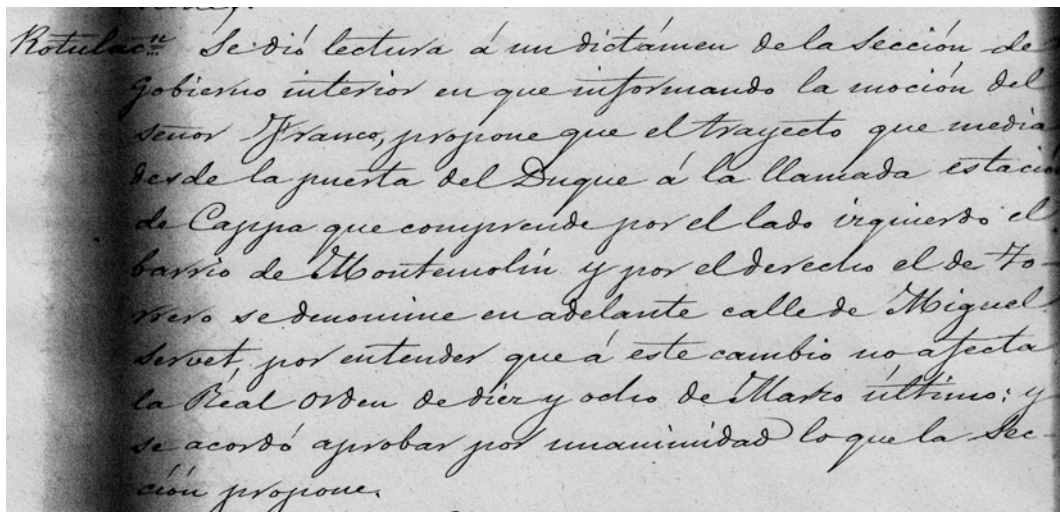 Rotulacn Se dió lectura á un dictámen de la Sección de
Gobierno interior en que informando la moción del
señor Franco, propone que el trayecto que media
desde la puerta del Duque á la llamada estación
de Cappa que comprende por el lado izquierdo el
barrio de Montemolín y por el derecho el de To-
rrero se denomine en adelante calle de Miguel
Servet, por entender que á este cambio no afecta
la Real orden de diez y ocho de Marzo último; y
se acordó aprobar por unanimidad lo que la Sec-
ción propone.